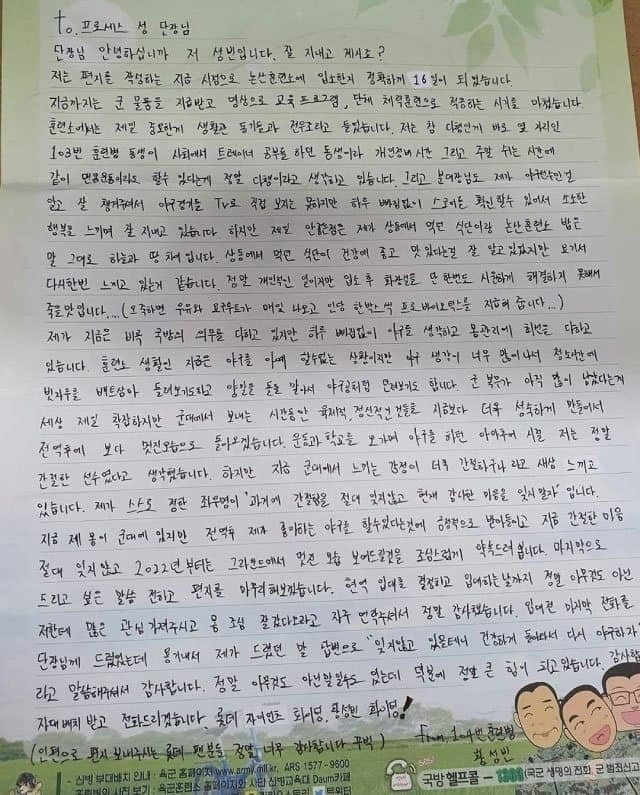 to. 프로세스 성 단장님
단장님 안녕하십니까 저 성빈입니다. 잘 지내고 계시죠?
저는 편지를 작성하는 지금 시점으로 논산훈련소에 입소한지 정확하게 16일이 되었습니다.
지금까지는 군 물품을 지급받고 영상으로 교육 프로그램, 단체 체력훈련으로 적응하는 시기를 마쳤습니다.
훈련소에서는 제일 중요한게 생활관 동기들과 전우조라고 들었습니다. 저는 참 다행인게 바로 옆 자리인
103번 훈련병 동생이 사회에서 트레이너 공부를 하던 동생이라 개인정비시간 그리고 주말 쉬는 시간에
같이 맨몸운동이라도 할수 있다는게 정말 다행이라고 생각하고 있습니다. 그리고 분대장님도 제가 야구선수인걸
알고 잘 챙겨주셔서 야구경기를 TV로 직접 보지는 못하지만 하루 빠짐없이 스코어를 확인할수 있어서 소소한
행복을 느끼며 잘 지내고 있습니다. 하지만 제일 안좋은점은 제가 상동에서 먹던 식단이랑 논산훈련소 밥은
말 그대로 하늘과 땅 차이입니다. 상동에서 먹던 식단이 건강에 좋고 맛있다는걸 잘 알고있었지만 여기서
다시한번 느끼고 있는거 같습니다. 정말 개인적인 일이지만 입소 후 화장실을 단 한번도 시원하게 해결하지 못해서
죽을맛입니다....(오죽하면 우유와 요구르트가 매일 나오고 인당 한박스씩 프로바이오틱스를 지급해 줍니다...)
제가 지금은 비록 국방의 의무를 다하고 있지만 하루 빠짐없이 야구를 생각하고 몸관리에 최선을 다하고
있습니다. 훈련소 생활인 지금은 야구를 아예 할수없는 상황이지만 야구 생각이 너무 많이나서 청소시간에
빗자루를 배트삼아 돌려보기도하고 양말을 돌돌 말아서 야구공처럼 던져보기도 합니다. 군 복무가 아직 많이 남았다는게
세상 제일 막막하지만 군대에서 보내는 시간동안 육체적, 정신적인것들로 지금보다 더욱 성숙하게 만들어서
전역후에 보다 멋진모습으로 돌아오겠습니다. 운동과 학교를 오가며 야구를 하던 아마추어 시절 저는 정말
간절한 선수였다고 생각했습니다. 하지만 지금 군대에서 느끼는 감정이 더욱 간절하구나 라고 새삼 느끼고
있습니다. 제가 스스로 정한 좌우명이 '과거에 간절함을 절대 잊지않고 현재 감사한 마음을 잊지말자' 입니다.
지금 제 몸이 군대에 있지만 전역후 제가 좋아하는 야구를 할수있다는것에 긍정적으로 받아들이고 지금 간절한 마음
절대 잊지않고 2022년부터는 그라운드에서 멋진 모습 보여드릴것을 조심스럽게 약속드려 봅니다. 마지막으로
드리고 싶은 말씀 전하고 편지를 마무리해보겠습니다. 현역 입대를 결정하고 입대하는날까지 정말 아무것도 아닌
저한테 많은 관심 가져주시고 몸 조심 잘갔다오라고 자주 연락주셔서 정말 감사했습니다. 입대전 마지막 전화를
단장님께 드렸었는데 용기내서 제가 드렸던 말 답변으로 "잊지않고 있을테니 건강하게 돌아와서 다시 야구하자"
라고 말씀해주셔서 감사합니다. 정말 아무것도 아닌말일수도 있는데 덕분에 정말 큰 힘이 되고있습니다. 감사합
자대배치 받고 전화드리겠습니다. 롯데 자이언츠 화이팅, 황성빈 화이팅!
(인편으로 편지 보내주시는 롯데 팬분들 정말 너무 감사합니다 꾸벅)
From. 104번 훈련병
황성빈
신병 부대배치 안내 : 육군 홈페이지 www.army.mil.kr. ARS 1577-9600
훈련병의 사진 보기 : 육군훈련소 홈페이지와 사단 신병교육대 Daum카페
국방헬프콜 - 1303 (국군 생명의 전화, 군 범죄신고